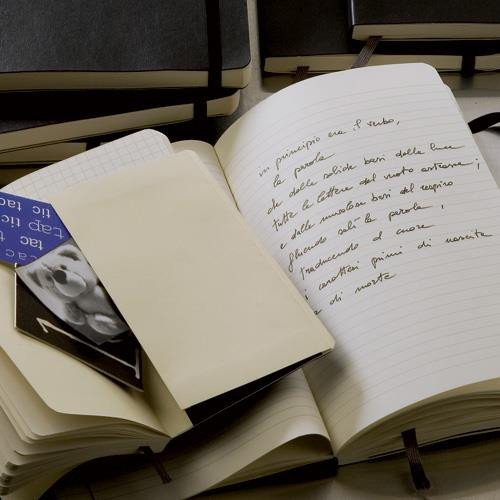 in principio era il verbo,
la parola
che dalle calide basi della luce
tutte le lettere del moto
e dalle basi del respiro
salì la parola,
traducendo al cuore
i caratteri primi di nascita
e di morte
tac
tap tic
tic tac
1